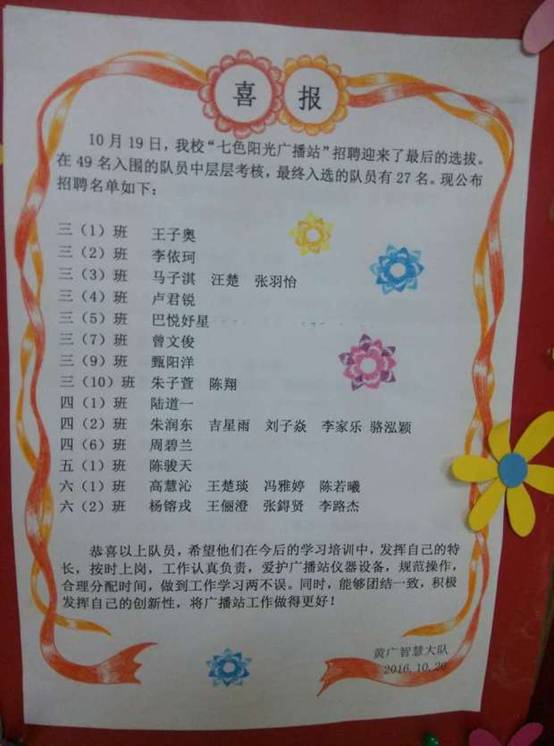 喜报
10月19日，我校“七色阳光广播站”招聘迎来了最后的选拔。
在49名入围的队员中层层考核，最终入选的队员有27名。现公布
招聘名单如下：
三（1）班 王子奥
三（2）班 李依珂
三（3）班 马子淇 汪楚 张羽怡
三（4）班 卢君锐
三（5）班 巴悦妤星
三（7）班 曾文俊
三（9）班 甄阳洋
三（10）班 朱子萱 陈翔
四（1）班 陆道一
四（2）班 朱润东 吉星雨 刘子焱 李家乐 骆泓颖
四（6）班 周碧兰
五（1）班 陈骏天
六（1）班 高慧沁 王楚琰 冯雅婷 陈若曦
六（2）班 杨镕戎 王俪澄 张鍀贤 李路杰
恭喜以上队员，希望他们在今后的学习培训中，发挥自己的特
长，按时上岗，工作认真负责，爱护广播站仪器设备，规范操作，
合理分配时间，做到工作学习两不误。同时，能够团结一致，积极
发挥自己的创新性，将广播站工作做得更好！
黄广智慧大队
2016.10.20